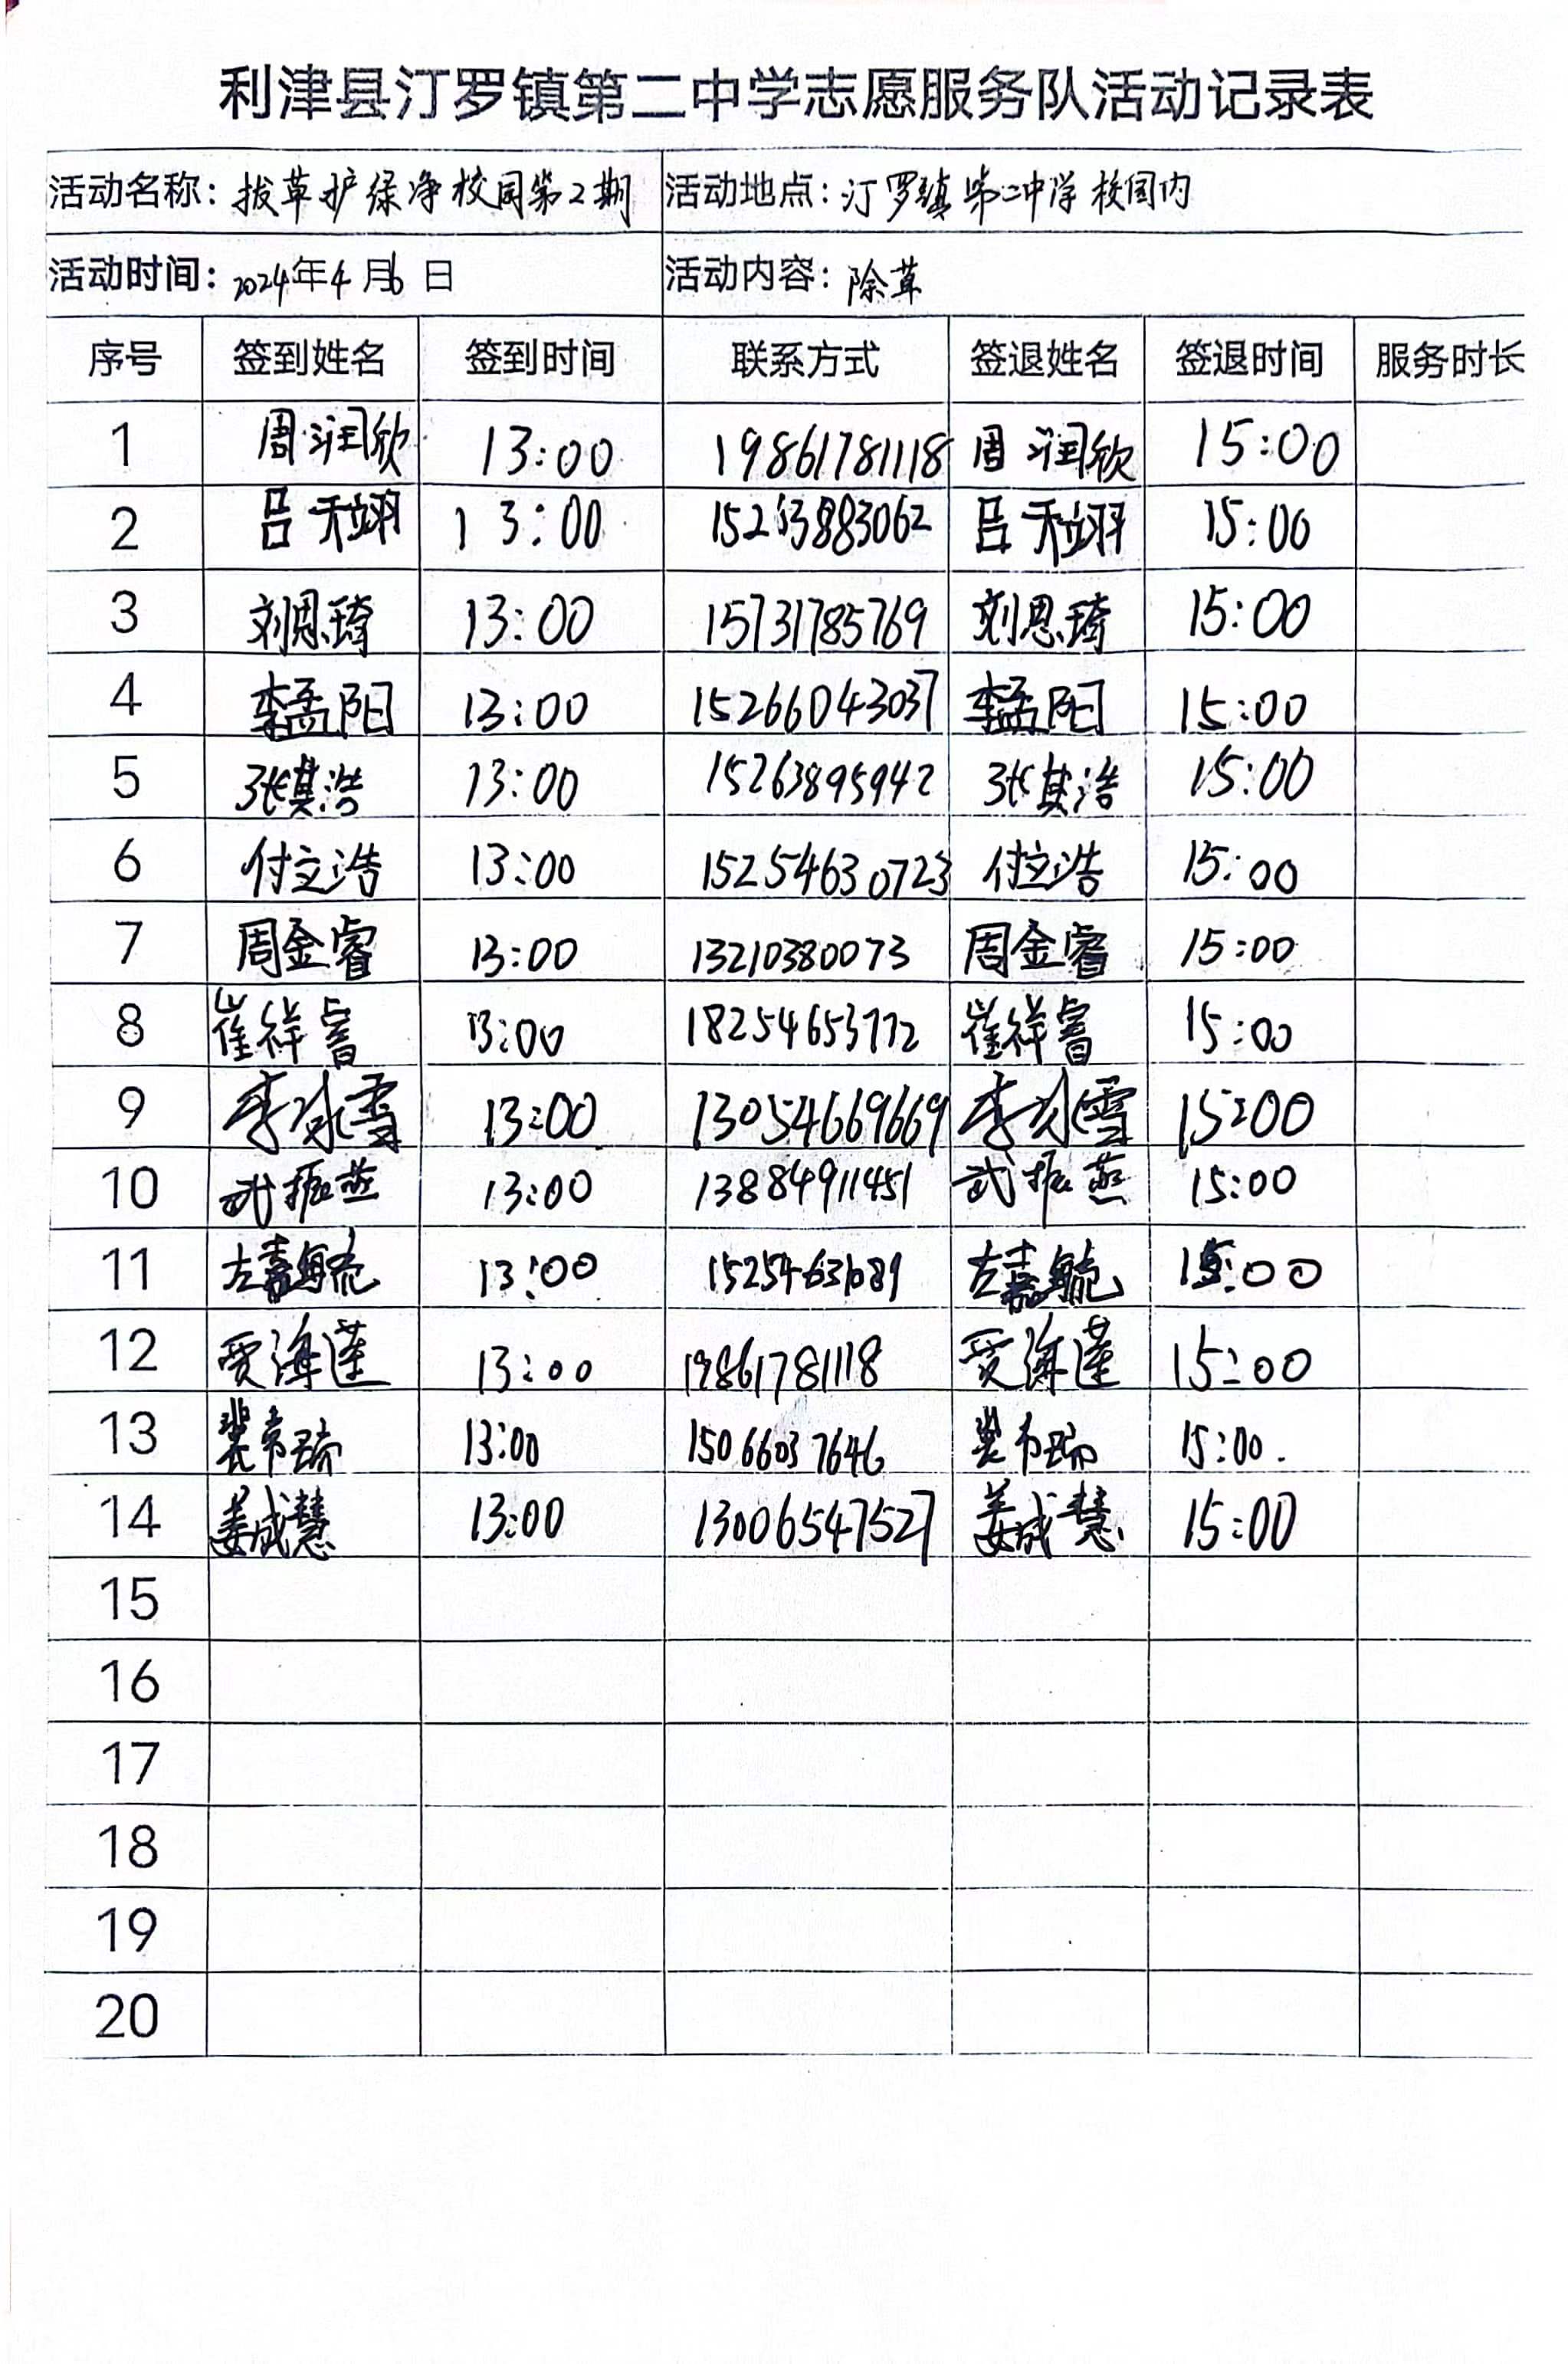 利津县汀罗镇第二中学志愿服务队活动记录表
活动名称：拔草护绿净校园第2期 活动地点：汀罗镇第二中学校园内
活动时间：2024年4月6日 活动内容：除草
序号 签到姓名 签到时间 联系方式 签退姓名 签退时间 服务时长
1 周润欣 13:00 19861781118 周润欣 15:00
2 吕 13:00 15263883062 吕 15:00
3 刘恩琦 13:00 15731785769 刘恩琦 15:00
4 李孟阳 13:00 15266043037 李孟阳 15:00
5 张其浩 13:00 15263895942 张其浩 15:00
6 付立浩 13:00 15254630723 付立浩 15:00
7 周金睿 13:00 13210380073 周金睿 15:00
8 崔祥睿 13:00 18254653772 崔祥睿 15:00
9 李冰雪 13:00 13054669669 李冰雪 15:00
10 武振燕 13:00 13884911451 武振燕 15:00
11 左嘉毓 13:00 15254631689 左嘉毓 15:00
12 贾海莲 13:00 19861781118 贾海莲 15:00
13 13:00 15066037646 15:00
14 姜成慧 13:00 13006547527 姜成慧 15:00
15
16
17
18
19
20